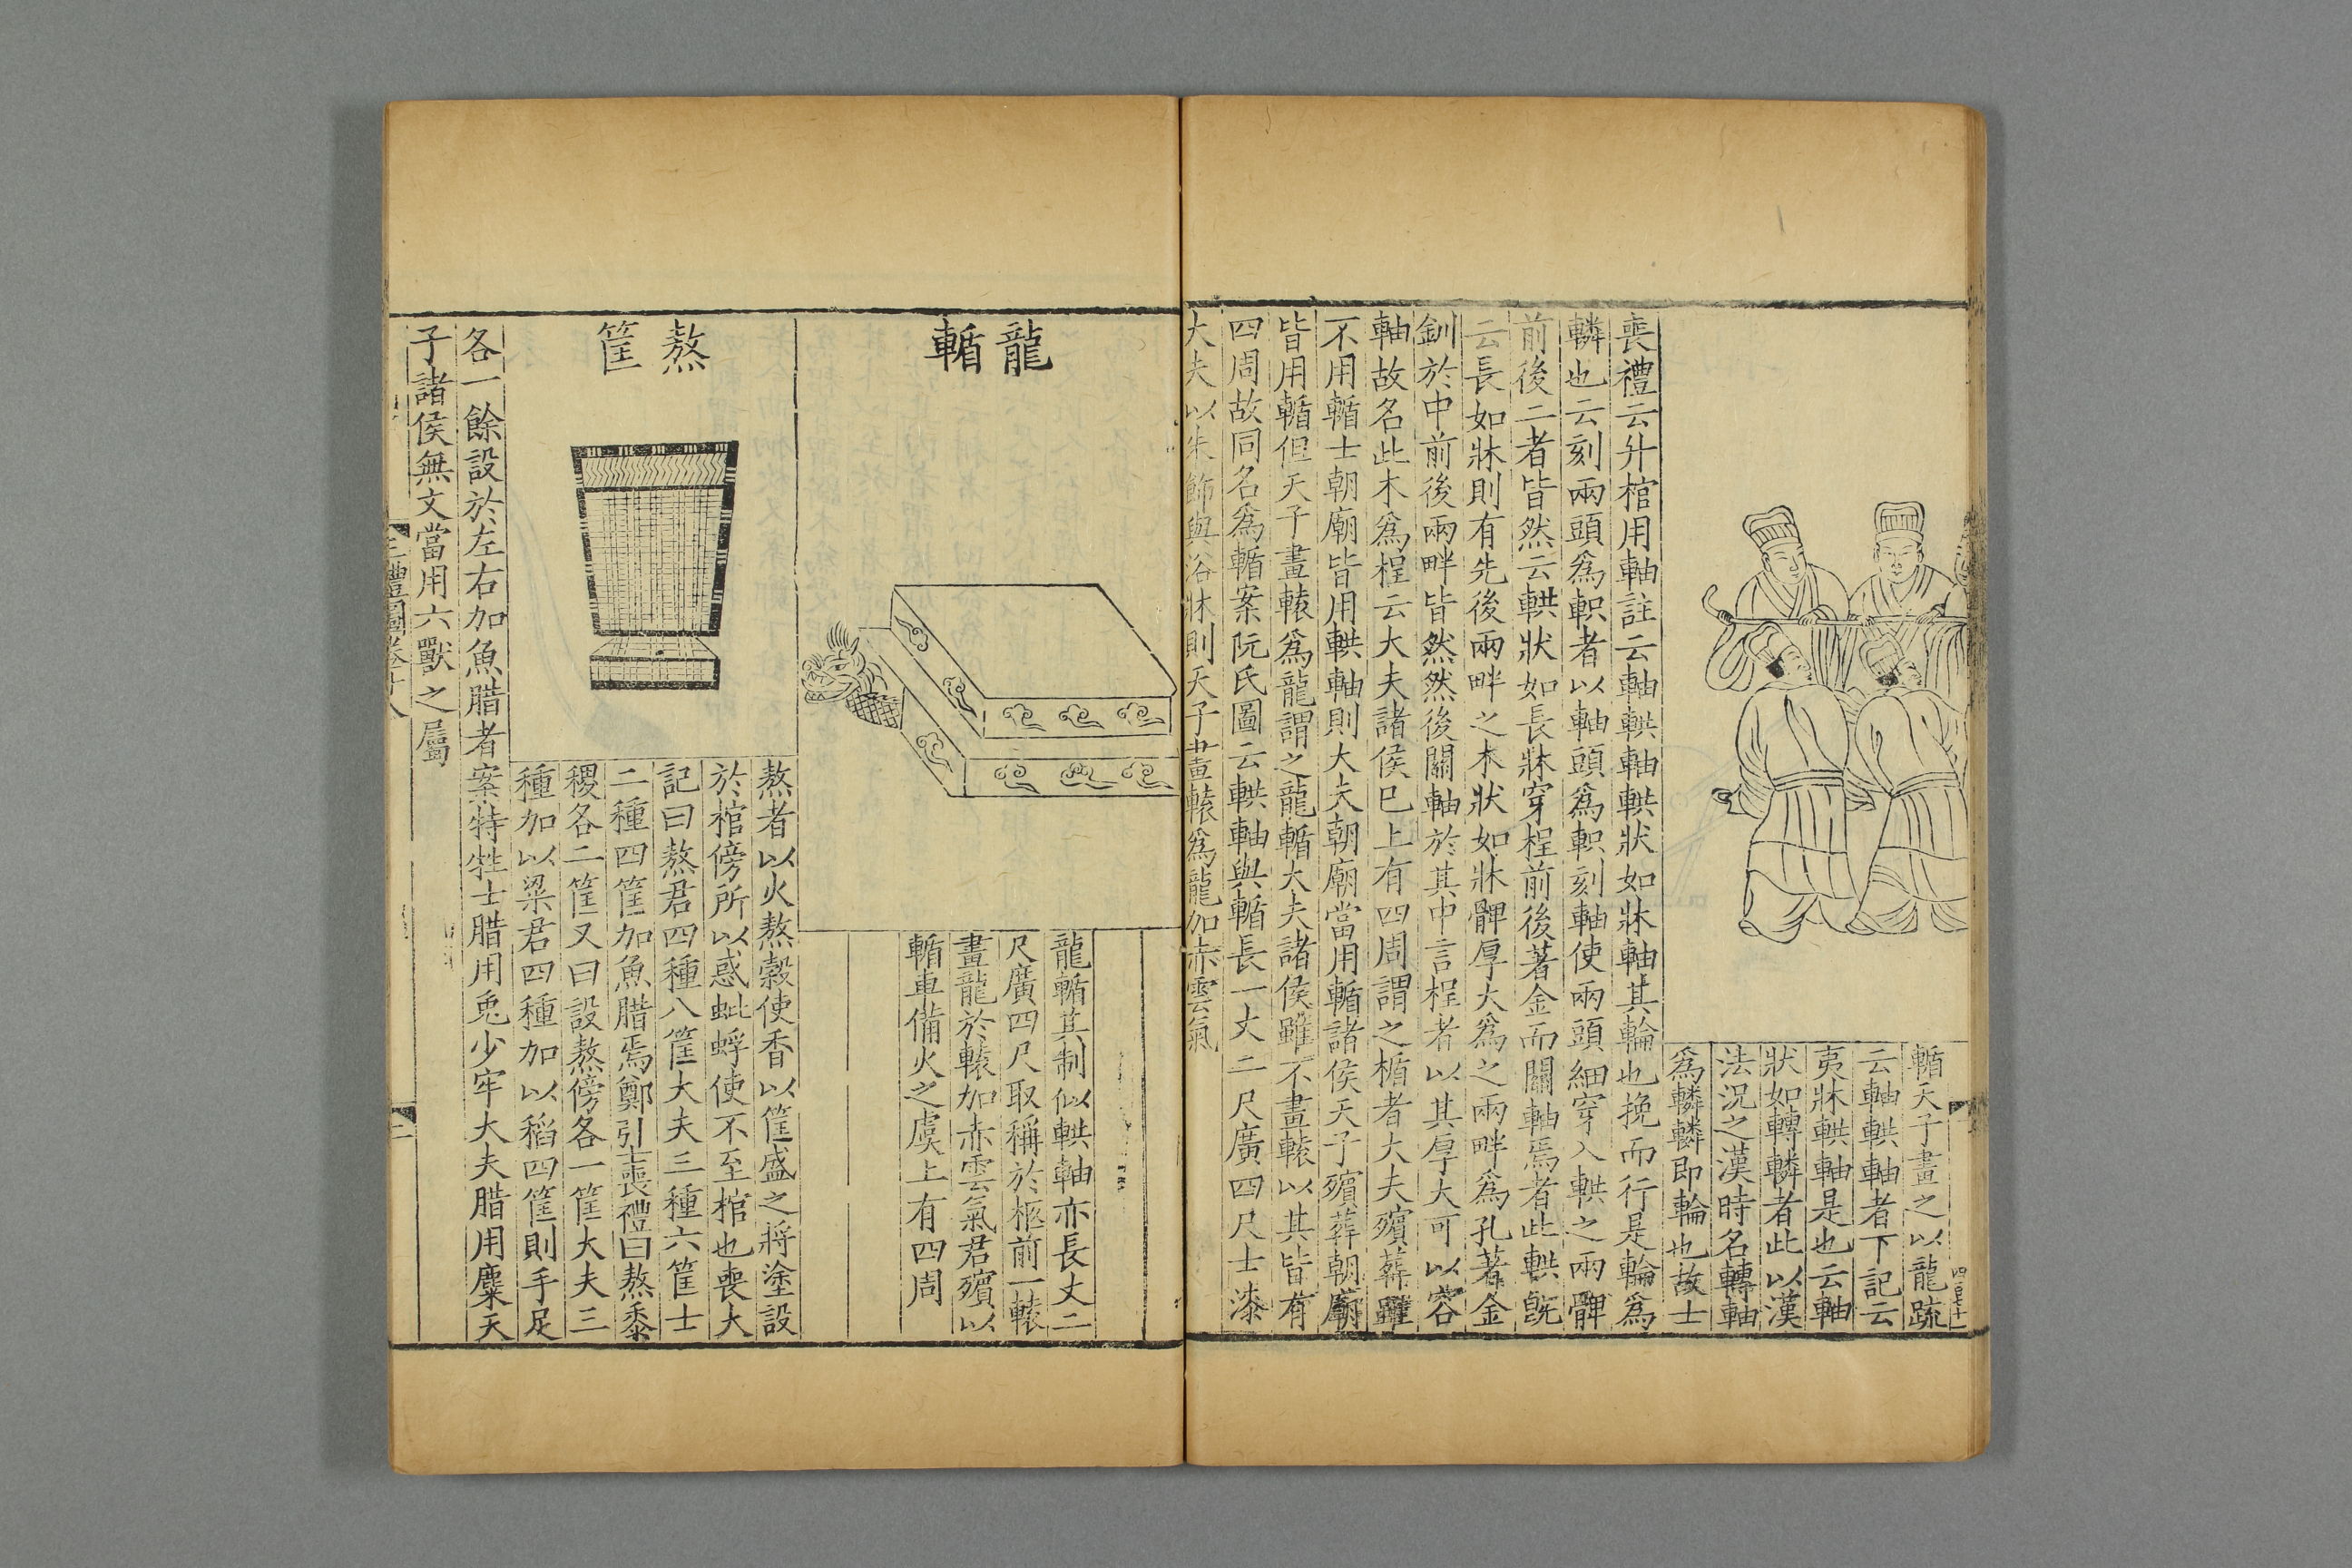 輴天子畫之以龍疏
云軸輁軸者下記云
夷牀輁軸是也云軸
狀如轉轔者此以漢
法況之漢時名轉軸
爲轔轔即輪也故士
喪禮云升棺用軸註云軸輁軸輁狀如牀軸其輪也挽而行是輪爲
轔也云刻兩頭爲軹者以軸頭爲軹刻軸使兩頭細穿入輁之兩髀
前後二者皆然云輁狀如長牀穿桯前後著金而關軸焉者此輁旣
云長如牀則有先後兩畔之木狀如牀髀厚大爲之兩畔爲孔著金
釧於中前後兩畔皆然然後關軸於其中言桯者以其厚大可以容
軸故名此木爲桯云大夫諸侯巳上有四周謂之楯者大夫殯葬雖
不用輴士朝廟皆用輁軸則大夫朝廟當用輴諸侯天子殯葬朝廟
皆用輴但天子畫轅爲龍謂之龍輴大夫諸侯雖不畫轅以其皆有
四周故同名爲輴案阮氏圖云輁軸與輴長一丈二尺廣四尺士漆
大夫以朱飾與浴牀則天子畫轅爲龍加赤雲氣
龍輴
龍輴其制似輁軸亦長丈二
尺廣四尺取稱於柩前一轅
畫龍於轅加赤雲氣君殯以
輴車備火之虞上有四周
熬筐
熬者以火熬穀使香以筐盛之將塗設
於棺傍所以惑蚍蜉使不至棺也喪大
記曰熬君四種八筐大夫三種六筐士
二種四筐加魚腊焉鄭引士喪禮曰熬黍
稷各二筐又曰設熬傍各一筐大夫三
種加以粱君四種加以稻四筐則手足
各一餘設於左右加魚腊者案特牲士腊用兎少牢大夫腊用麋天
子諸侯無文當用六獸之屬
三禮圖卷十八